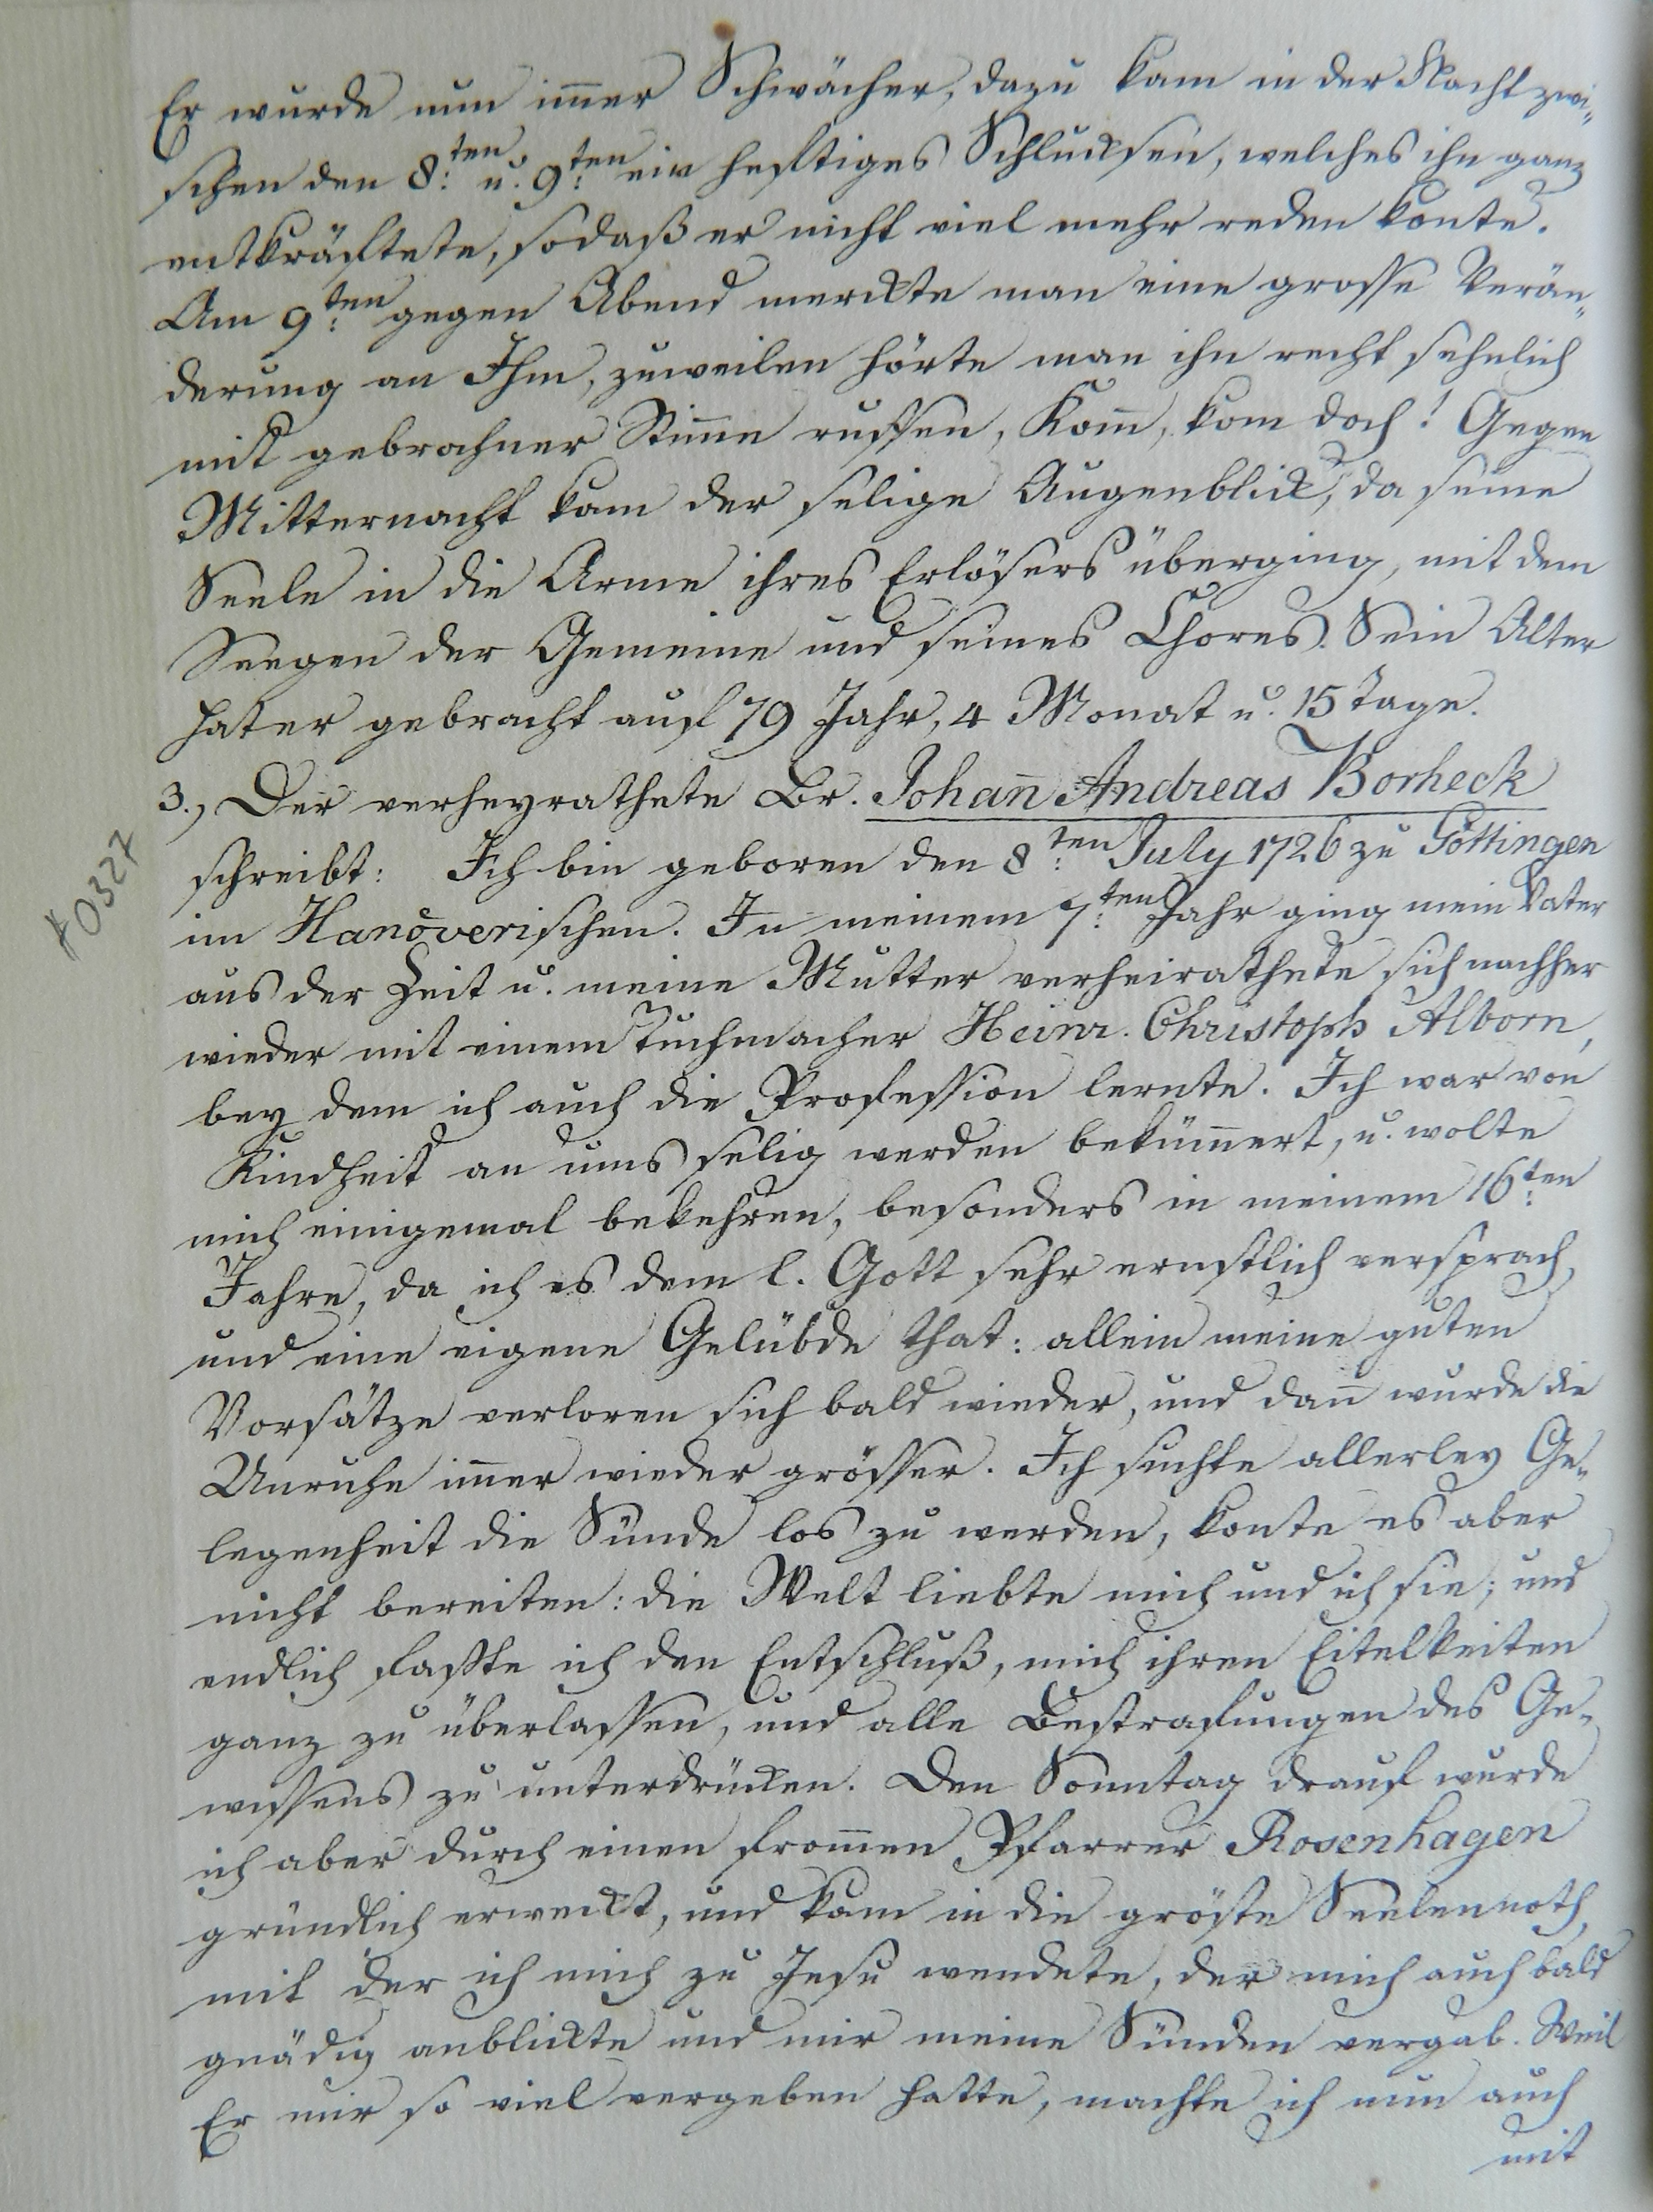 Er wurde nun im̄er Schwächer, dazu kam in der Nacht zwi-
schen den 8ten u. 9ten ein heftiges Schlucksen, welches ihn ganz
entkräftete, sodaß er nicht viel mehr reden konte.
Am 9ten gegen Abend merckte man eine grosse Verän-
derung an Ihm, zuweilen hörte man ihn recht sehnlich
mit gebrochner Stim̄e ruffen, Kom̄, kom doch! Gegen
Mitternacht kam der selige Augenblick, da seine
Seele in die Arme ihres Erlösers überging, mit dem
Seegen der Gemeine und seines Chores. Sein Alter
hat er gebracht auf 79 Jahr, 4 Monat u. 15 Tage.
3., Der verheyrathete Br. Johan̄ Andreas Borheck
schreibt: Ich bin geboren den 8ten July 1726 zu Göttingen
#0327
im Hanöverischen. In meinem 7ten Jahr ging mein Vater
aus der Zeit u. meine Mutter verheirathete sich nachher
wieder mit einem Tuchmacher Heinr. Christoph Alborn,
bey dem ich auch die Profession lernte. Ich war von
Kindheit an ums selig werden beküm̄ert, u. wolte
mich einigemal bekehren, besonders in meinem 16ten
Jahre, da ich es dem l. Gott sehr ernstlich versprach,
und eine eigene Gelübde that: allein meine guten
Vorsätze verloren sich bald wieder, und dan̄ wurde die
Unruhe im̄er wieder grösser. Ich suchte allerley Ge-
legenheit die Sünde los zu werden, konte es aber
nicht bereiten: die Welt liebte mich und ich sie; und
endlich faßte ich den Entschluß, mich ihren Eitelkeiten
ganz zu überlassen, und alle Bestrafungen des Ge-
wissens zu unterdrücken. Den Sonntag drauf wurde
ich aber durch einen from̄en Pfarrer Rosenhagen
gründlich erweckt, und kam in die gröste Seelennoth,
mit der ich mich zu Jesu wendete, der mich auch bald
gnädig anblickte und mir meine Sünden vergab. Weil
Er mir so viel vergeben hatte, machte ich nun auch
mit